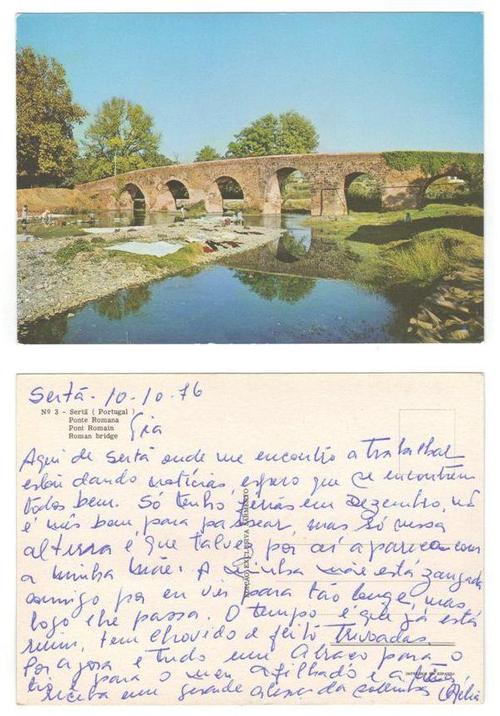 Sertã - 10-10-76
Nº 3 - Sertã ( Portugal )
Ponte Romana
Pont Romain
Roman bridge
Aqui de Sertã onde me encontro a trabalhar
estou dando notícias, espero que se encontrem
todos bem. Só tenho férias em Dezembro, não
é mês bom para passear, mas só nessa
altura é que talvez por aí apareça com
a minha Mãe. A minha mãe está zangada
comigo por eu vir para tão longe, mas
logo lhe passa. O tempo é que já está
ruim, tem chovido e feito trovoadas.
Por agora é tudo um abraço para o
tio para o meu afilhado e a
receba um grande abraço da
EDIÇÃO EXCLUSIVA